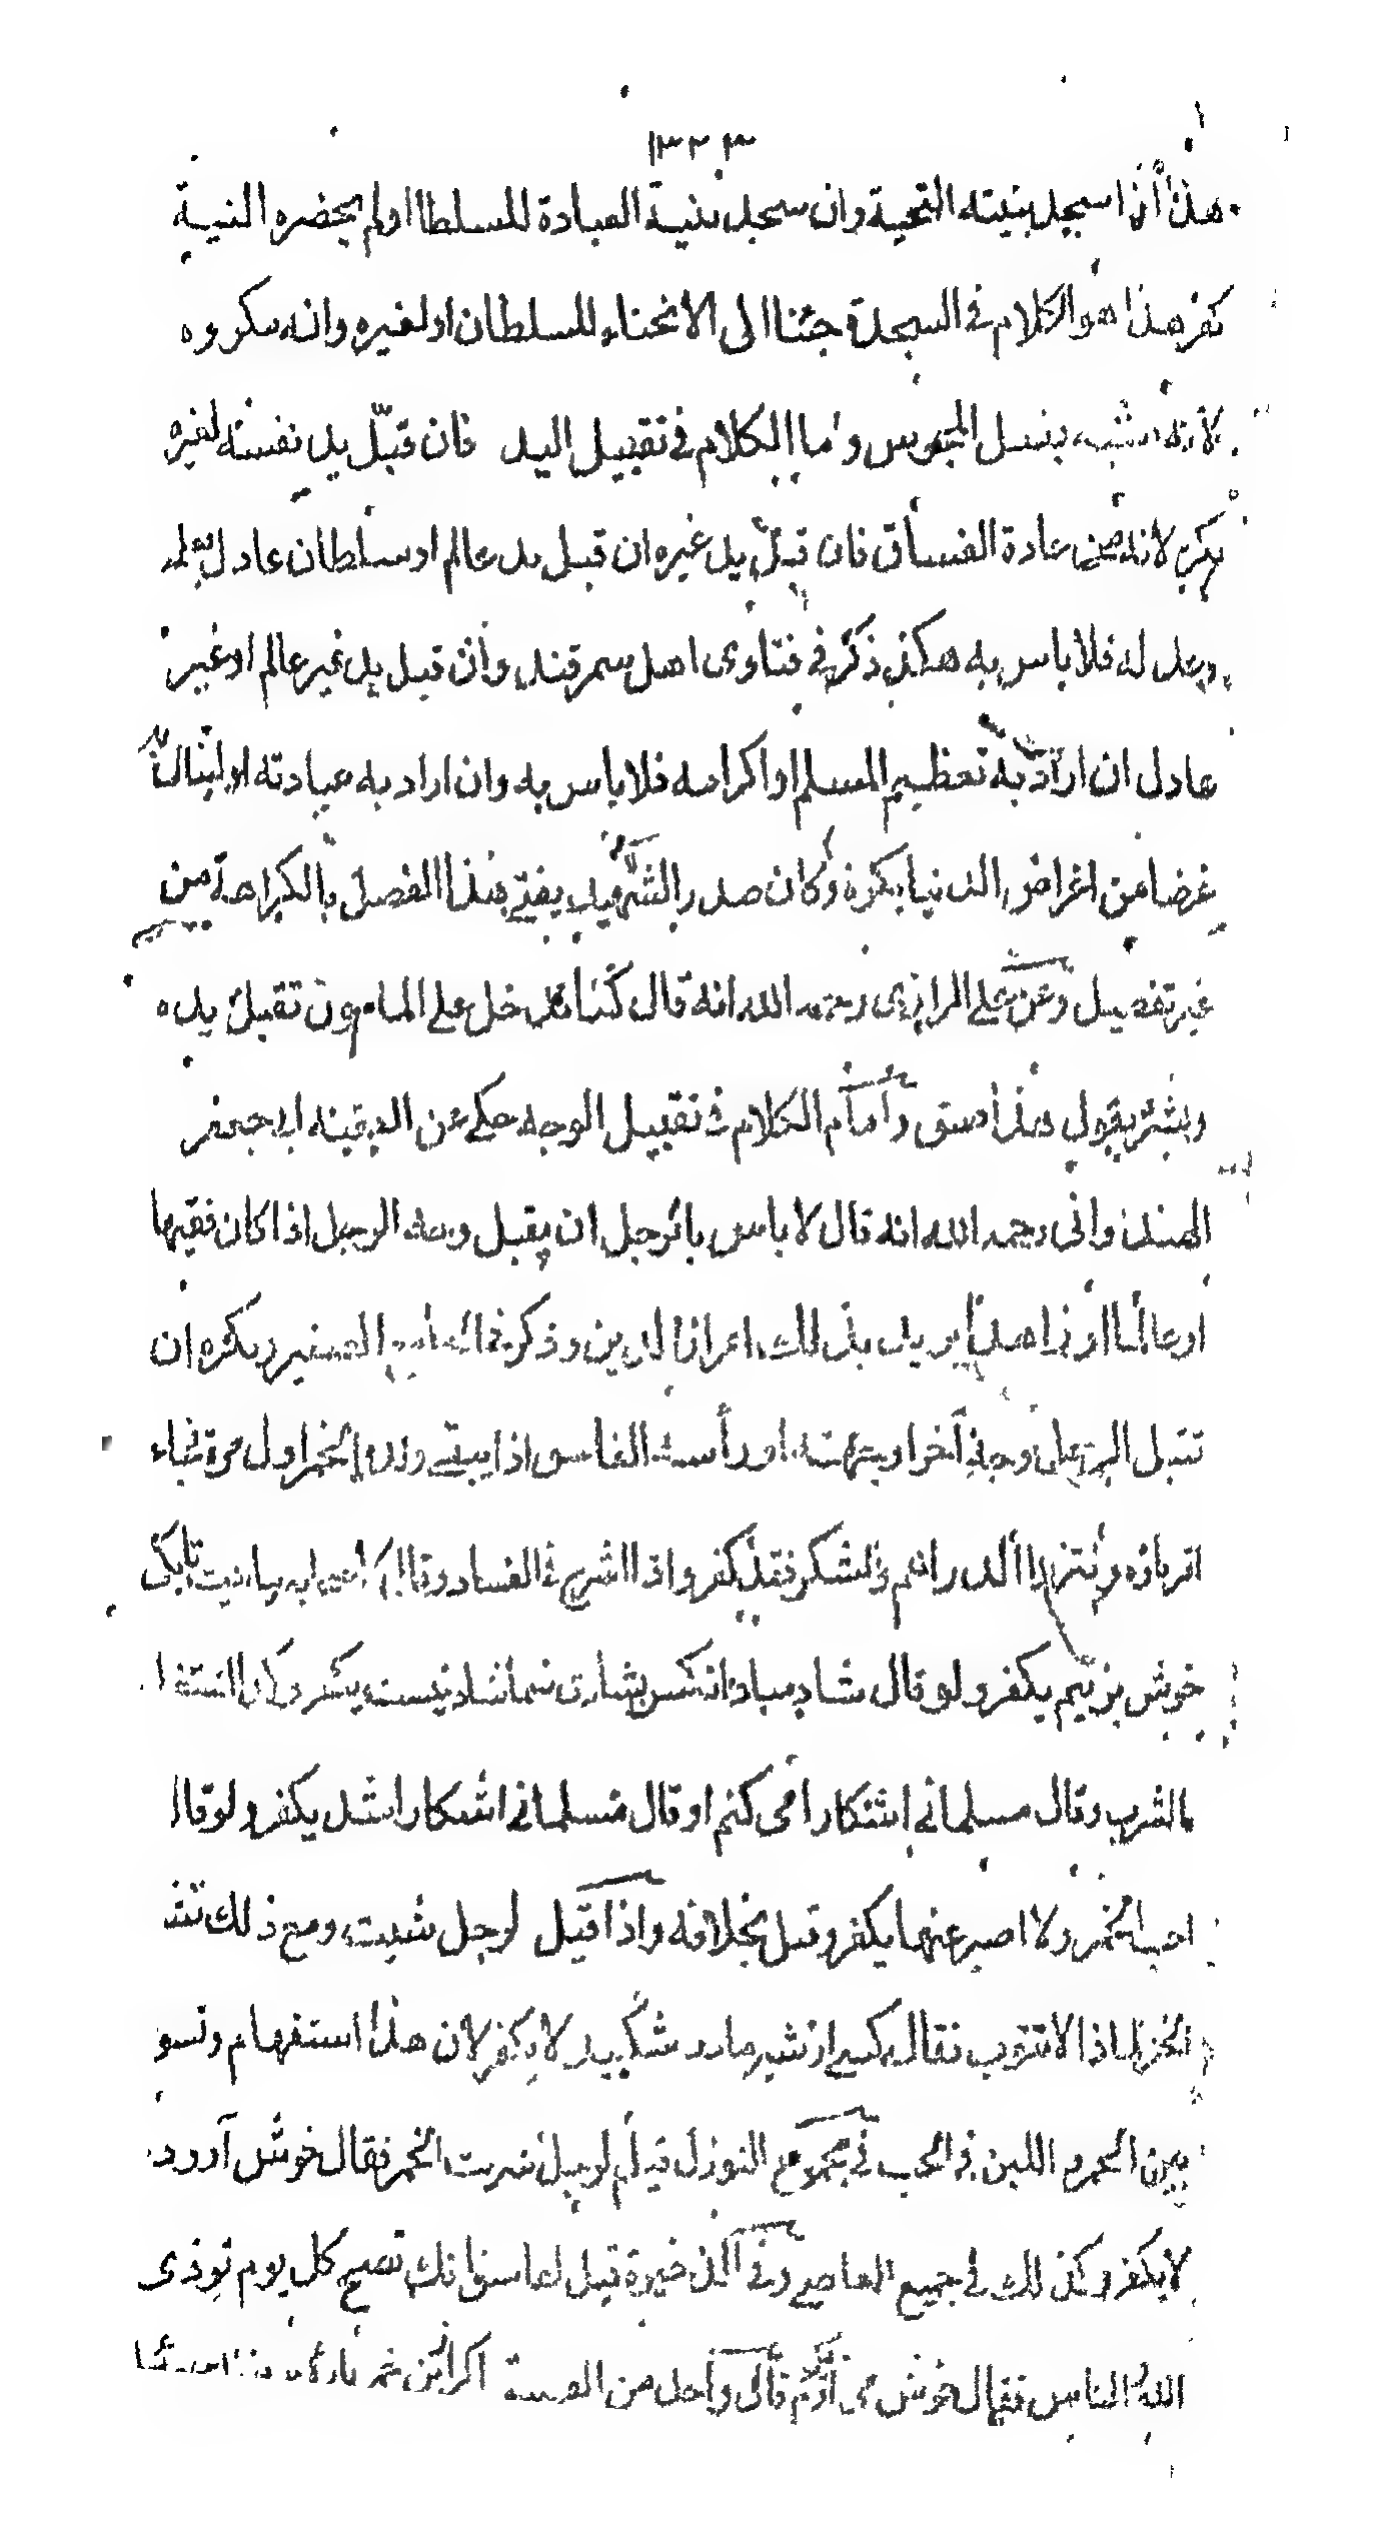 ١٣٢٣
هذا اذا سجد بنيته التحية وان سجد بنية العبادة للسلطا اولم يحضره النية
كفر هذا هو الكلام في السجدة جئنا الى الانحناء للسلطان او لغيره وانه مكروه
لانه يشبه بنسل المجوس واما الكلام في تقبيل اليد فان قبّل يد نفسه لغيره
يكره لانه من عادة الفساق فان قبل يد غيره ان قبل يد عالم او سلطان عادل لعلمه
وعدله فلا باس به هكذا ذكر في فتاوى اهل سمرقند وان قبل يد غير عالم او غير
عادل ان اراد به تعظيم المسلم او اكرامه فلا باس به وان اراد به عبادته او لينال
غرضا من اغراض الدنيا يكره وكان صدر الشهيد يفتي هذا الفصل بالكراهة من
غير تفصيل وعن علي الرازي رحمه الله انه قال كنا ندخل على المامون تقبل يده
وبشر يقول هذا فسق واما الكلام في تقبيل الوجه حكي عن الفقيه ابي جعفر
الهندواني رحمه الله انه قال لا باس بالرجل ان يقبل وجه الرجل اذا كان فقيها
او عالما او زاهدا يريد بذلك اعزاز الدين وذكر في الجامع الصغير ويكره ان
تقبل الرجل وجه آخر او جبهته او رأسه الفاسق اذا سقي ولده الخمر اول مرة فجاء
اقرباؤه ونثروا الدراهم والسكر فقد كفر واذا اشرع في الفساد وقال لاصحابه بياييت تايكى
خوش بزنيم يكفر ولو قال شاد مباد انكس بشادى ما شاد نيست يكفر وكذا اشتغل
بالشرب وقال مسلماني اشكارا مى كنم او قال مسلماني اشكارا شد يكفر ولو قال
احب الخمر ولا اصبر عنها يكفر وقيل بخلافه واذا قيل لرجل شيبت ومع ذلك تشر
الخمر لماذا الا تتوب فقال كسى از شير مادر شكيبد لا يكفر لان هذا استفهام وتسو
بين الخمر واللبن في الحب في مجموع النوازل قيل لرجل شربت الخمر فقال خوش آورد
لا يكفر وكذلك في جميع المعاصي وفي الذخيرة قيل لفاسق انك تصبح كل يوم توذى
الله الناس فقال خوش مى آرم قال واحد من الفسقة اكر اين خمر پاره